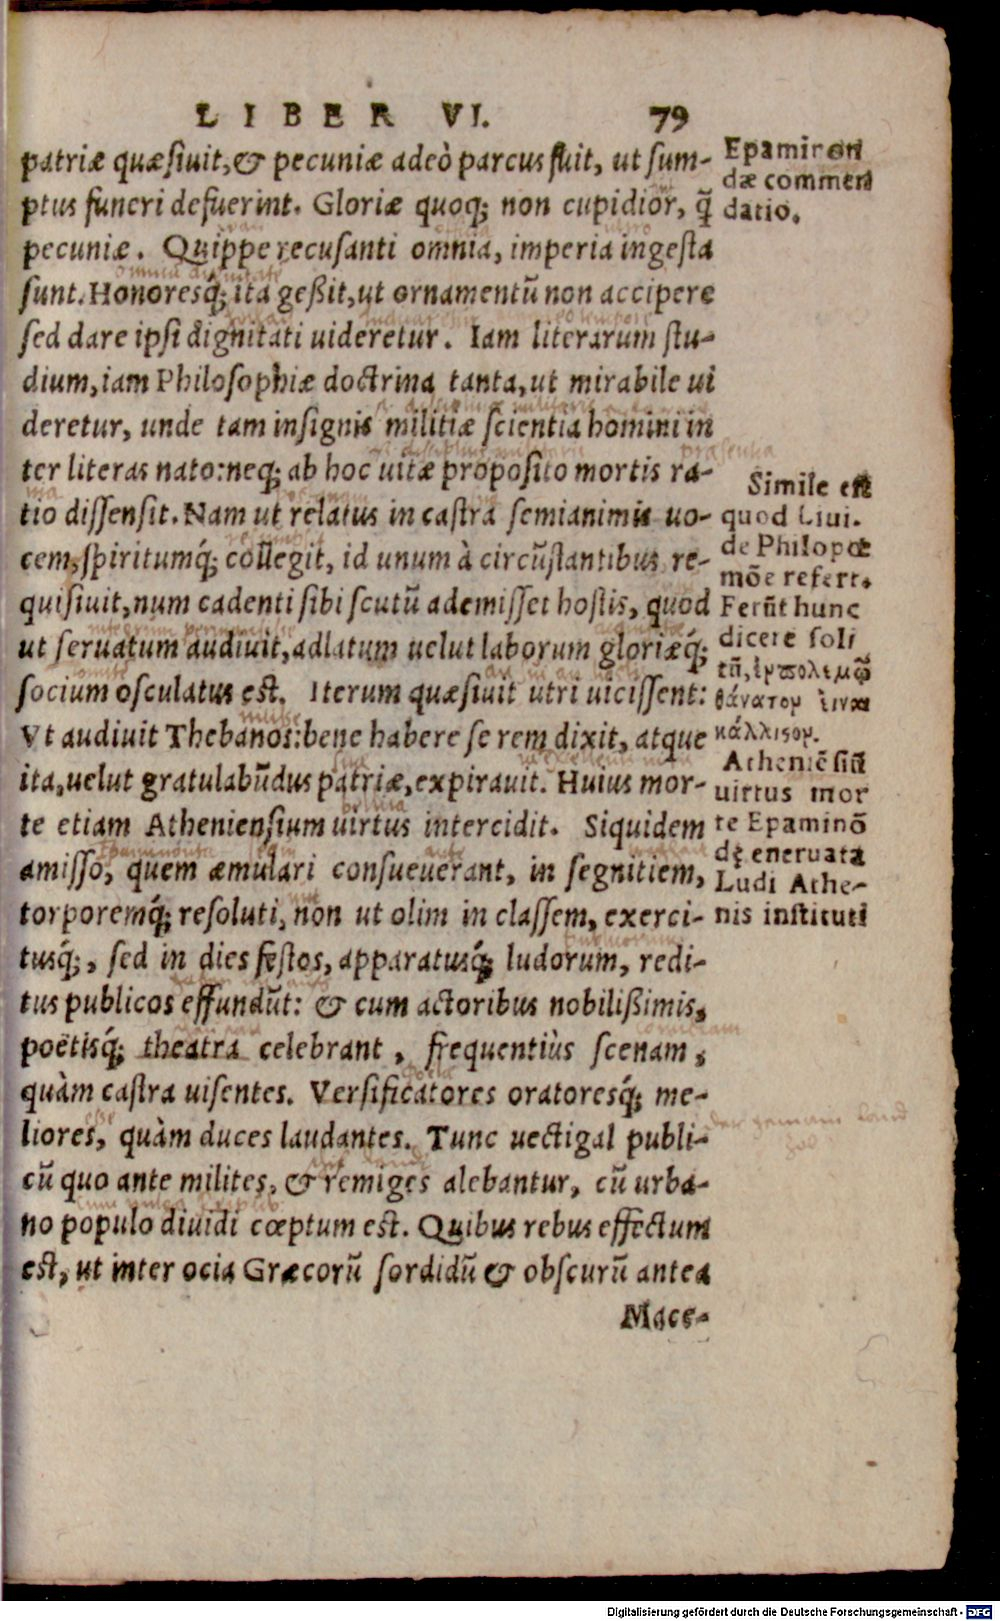 LIBER VI. 79
patriæ quæsiuit, & pecuniæ adeò parcus fuit, ut sum-
ptus funeri defuerint. Gloriæ quoq; non cupidior, q̃
pecuniæ. Quippe recusanti omnia, imperia ingesta
sunt. Honoresq́; ita geßit, ut ornamentũ non accipere
sed dare ipsi dignitati uideretur. Iam literarum stu-
dium, iam Philosophiæ doctrina tanta, ut mirabile ui
deretur, unde tam insignis militiæ scientia homini in
ter literas nato: neq; ab hoc uitæ proposito mortis ra-
tio dissensit. Nam ut relatus in castra semianimis uo-
cem, spiritumq́; collegit, id unum à circũstantibus re-
quisiuit, num cadenti sibi scutũ ademisset hostis, quod
ut seruatum audiuit, adlatum uelut laborum gloriæq́;
socium osculatus est. Iterum quæsiuit utri uicissent:
Vt audiuit Thebanos: bene habere se rem dixit, atque
ita, uelut gratulabũdus patriæ, expirauit. Huius mor-
te etiam Atheniensium uirtus intercidit. Siquidem
amisso, quem æmulari consueuerant, in segnitiem,
torporemq́; resoluti, non ut olim in classem, exerci-
tusq́;, sed in dies festos, apparatusq́; ludorum, redi-
tus publicos effundũt: & cum actoribus nobilißimis,
poëtisq́; theatra celebrant, frequentiùs scenam,
quàm castra uisentes. Versificatores oratoresq́; me-
liores, quàm duces laudantes. Tunc uectigal publi-
cũ quo ante milites, & remiges alebantur, cũ urba-
no populo diuidi cœptum est. Quibus rebus effectum
est, ut inter ocia Græcorũ sordidũ & obscurũ antea
Mace-
Epaminon
dæ commen
datio.
Simile est
quod Liui.
de Philopœ
mõe refert.
Ferũt hunc
dicere soli
tũ, ἐν πολέμῳ
θάνατον εἶναι
κάλλιστον.
Atheniẽsiũ
uirtus mor
te Epaminõ
dę eneruata
Ludi Athe-
nis instituti
Digitalisierung gefördert durch die Deutsche Forschungsgemeinschaft - DFG